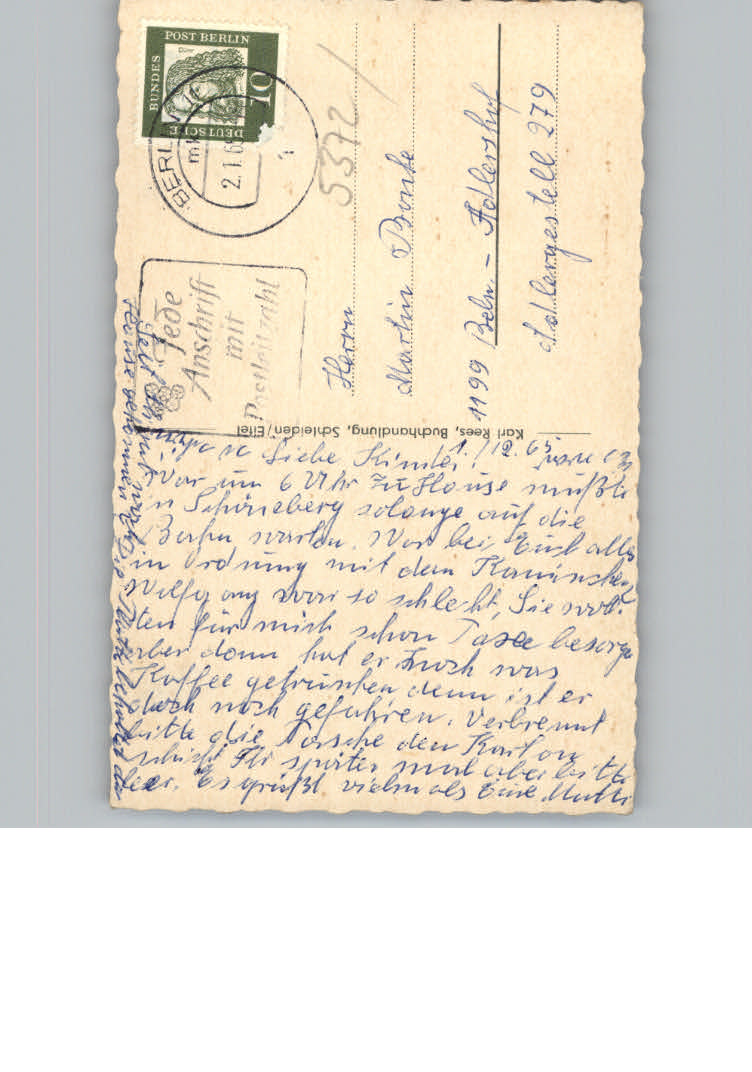 DEUTSCHE BUNDES POST BERLIN
Dürer
10
BERLIN
2.1.6
Jede
Anschrift
mit
Postleitzahl
5372
Herrn
Martin Bonke
1199 Bln - Adlershof
Adlergestell 279
Karl Rees, Buchhandlung, Schleiden/Eifel
Liebe Kinder!
War um 6 Uhr zu Hause mußte
in Schöneberg solange auf die
Bahn warten. War bei Euch alles
in Ordnung mit dem Kaninchen
Wolfgang war so schlecht, Sie woll-
ten für mich schon Taxe besorgen
aber dann hat er noch was
Kaffee getrunken denn ist er
doch noch gefahren. Verbrennt
bitte die Tasche den Karton
schickt Ihr später mal aber bitte
leer. Es grüßt vielmals Eure Mutti